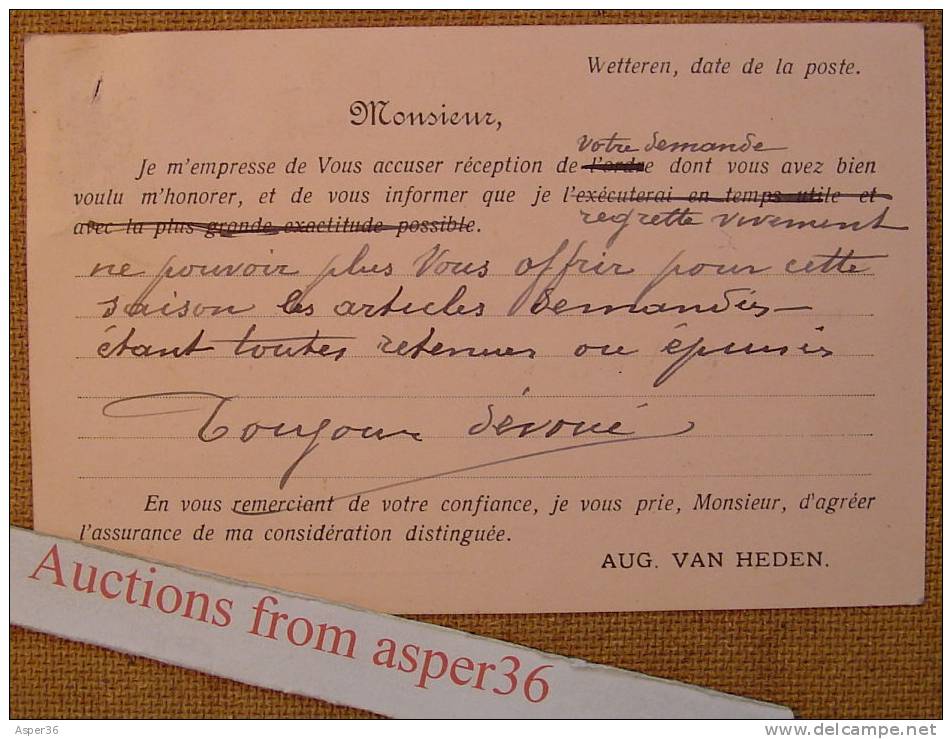 Wetteren, date de la poste.
Monsieur,
votre demande
Je m'empresse de Vous accuser réception de l'ordre dont vous avez bien
voulu m'honorer, et de vous informer que je l'exécuterai en temps utile et
avec la plus grande exactitude possible. regrette vivement
ne pouvoir plus Vous offrir pour cette
saison les articles demandés
étant toutes retenues ou épuisés
Toujours dévoué
En vous remerciant de votre confiance, je vous prie, Monsieur, d'agréer
l'assurance de ma considération distinguée.
AUG. VAN HEDEN.
Auctions from asper36
Asper36
http://www.delcampe.net